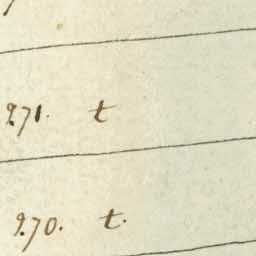 271. t
270. t.